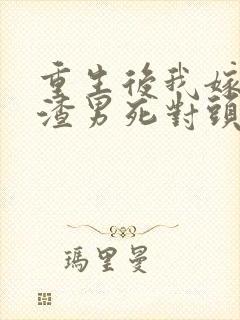 重生後我嫁
渣男死對頭
瑪里曼